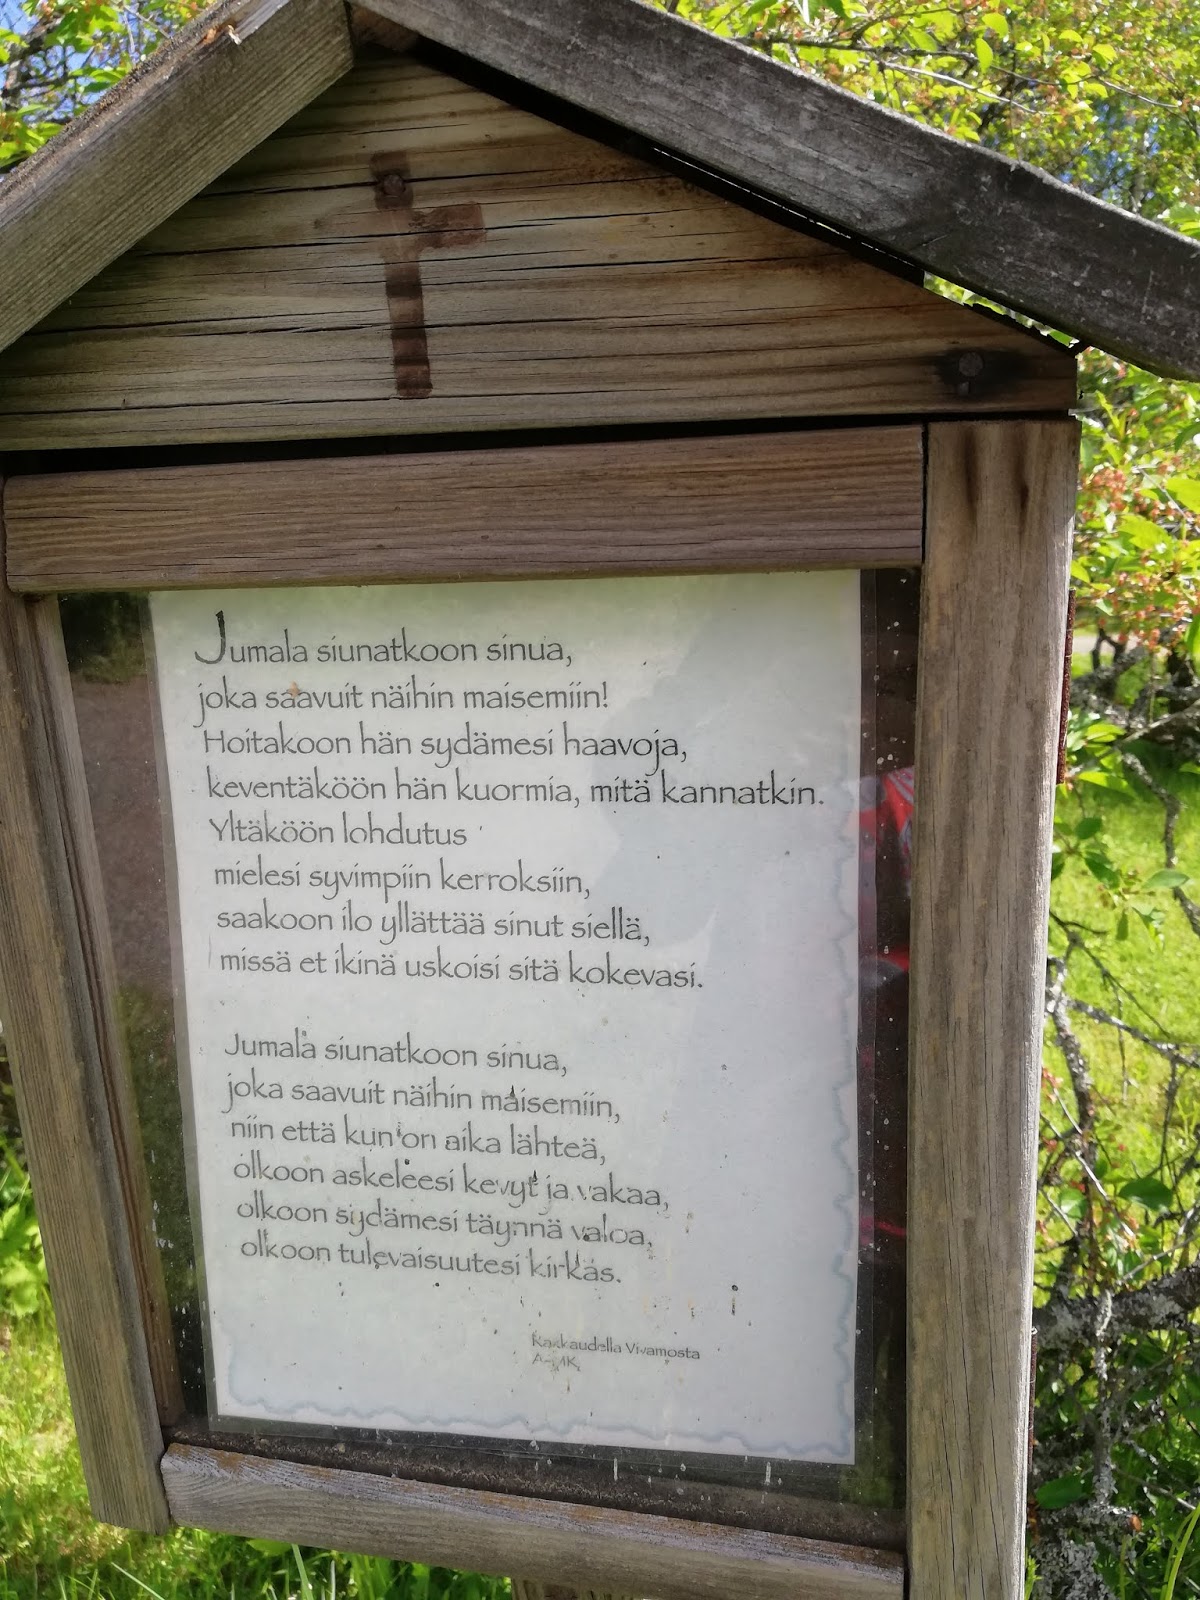 Jumala siunatkoon sinua,
joka saavuit näihin maisemiin!
Hoitakoon hän sydämesi haavoja,
keventäköön hän kuormia, mitä kannatkin.
Yltäköön lohdutus
mielesi syvimpiin kerroksiin,
saakoon ilo yllättää sinut siellä,
missä et ikinä uskoisi sitä kokevasi.
Jumala siunatkoon sinua,
joka saavuit näihin maisemiin,
niin että kun on aika lähteä,
olkoon askeleesi kevyt ja vakaa,
olkoon sydämesi täynnä valoa,
olkoon tulevaisuutesi kirkas.
Rakkaudella Vivamosta